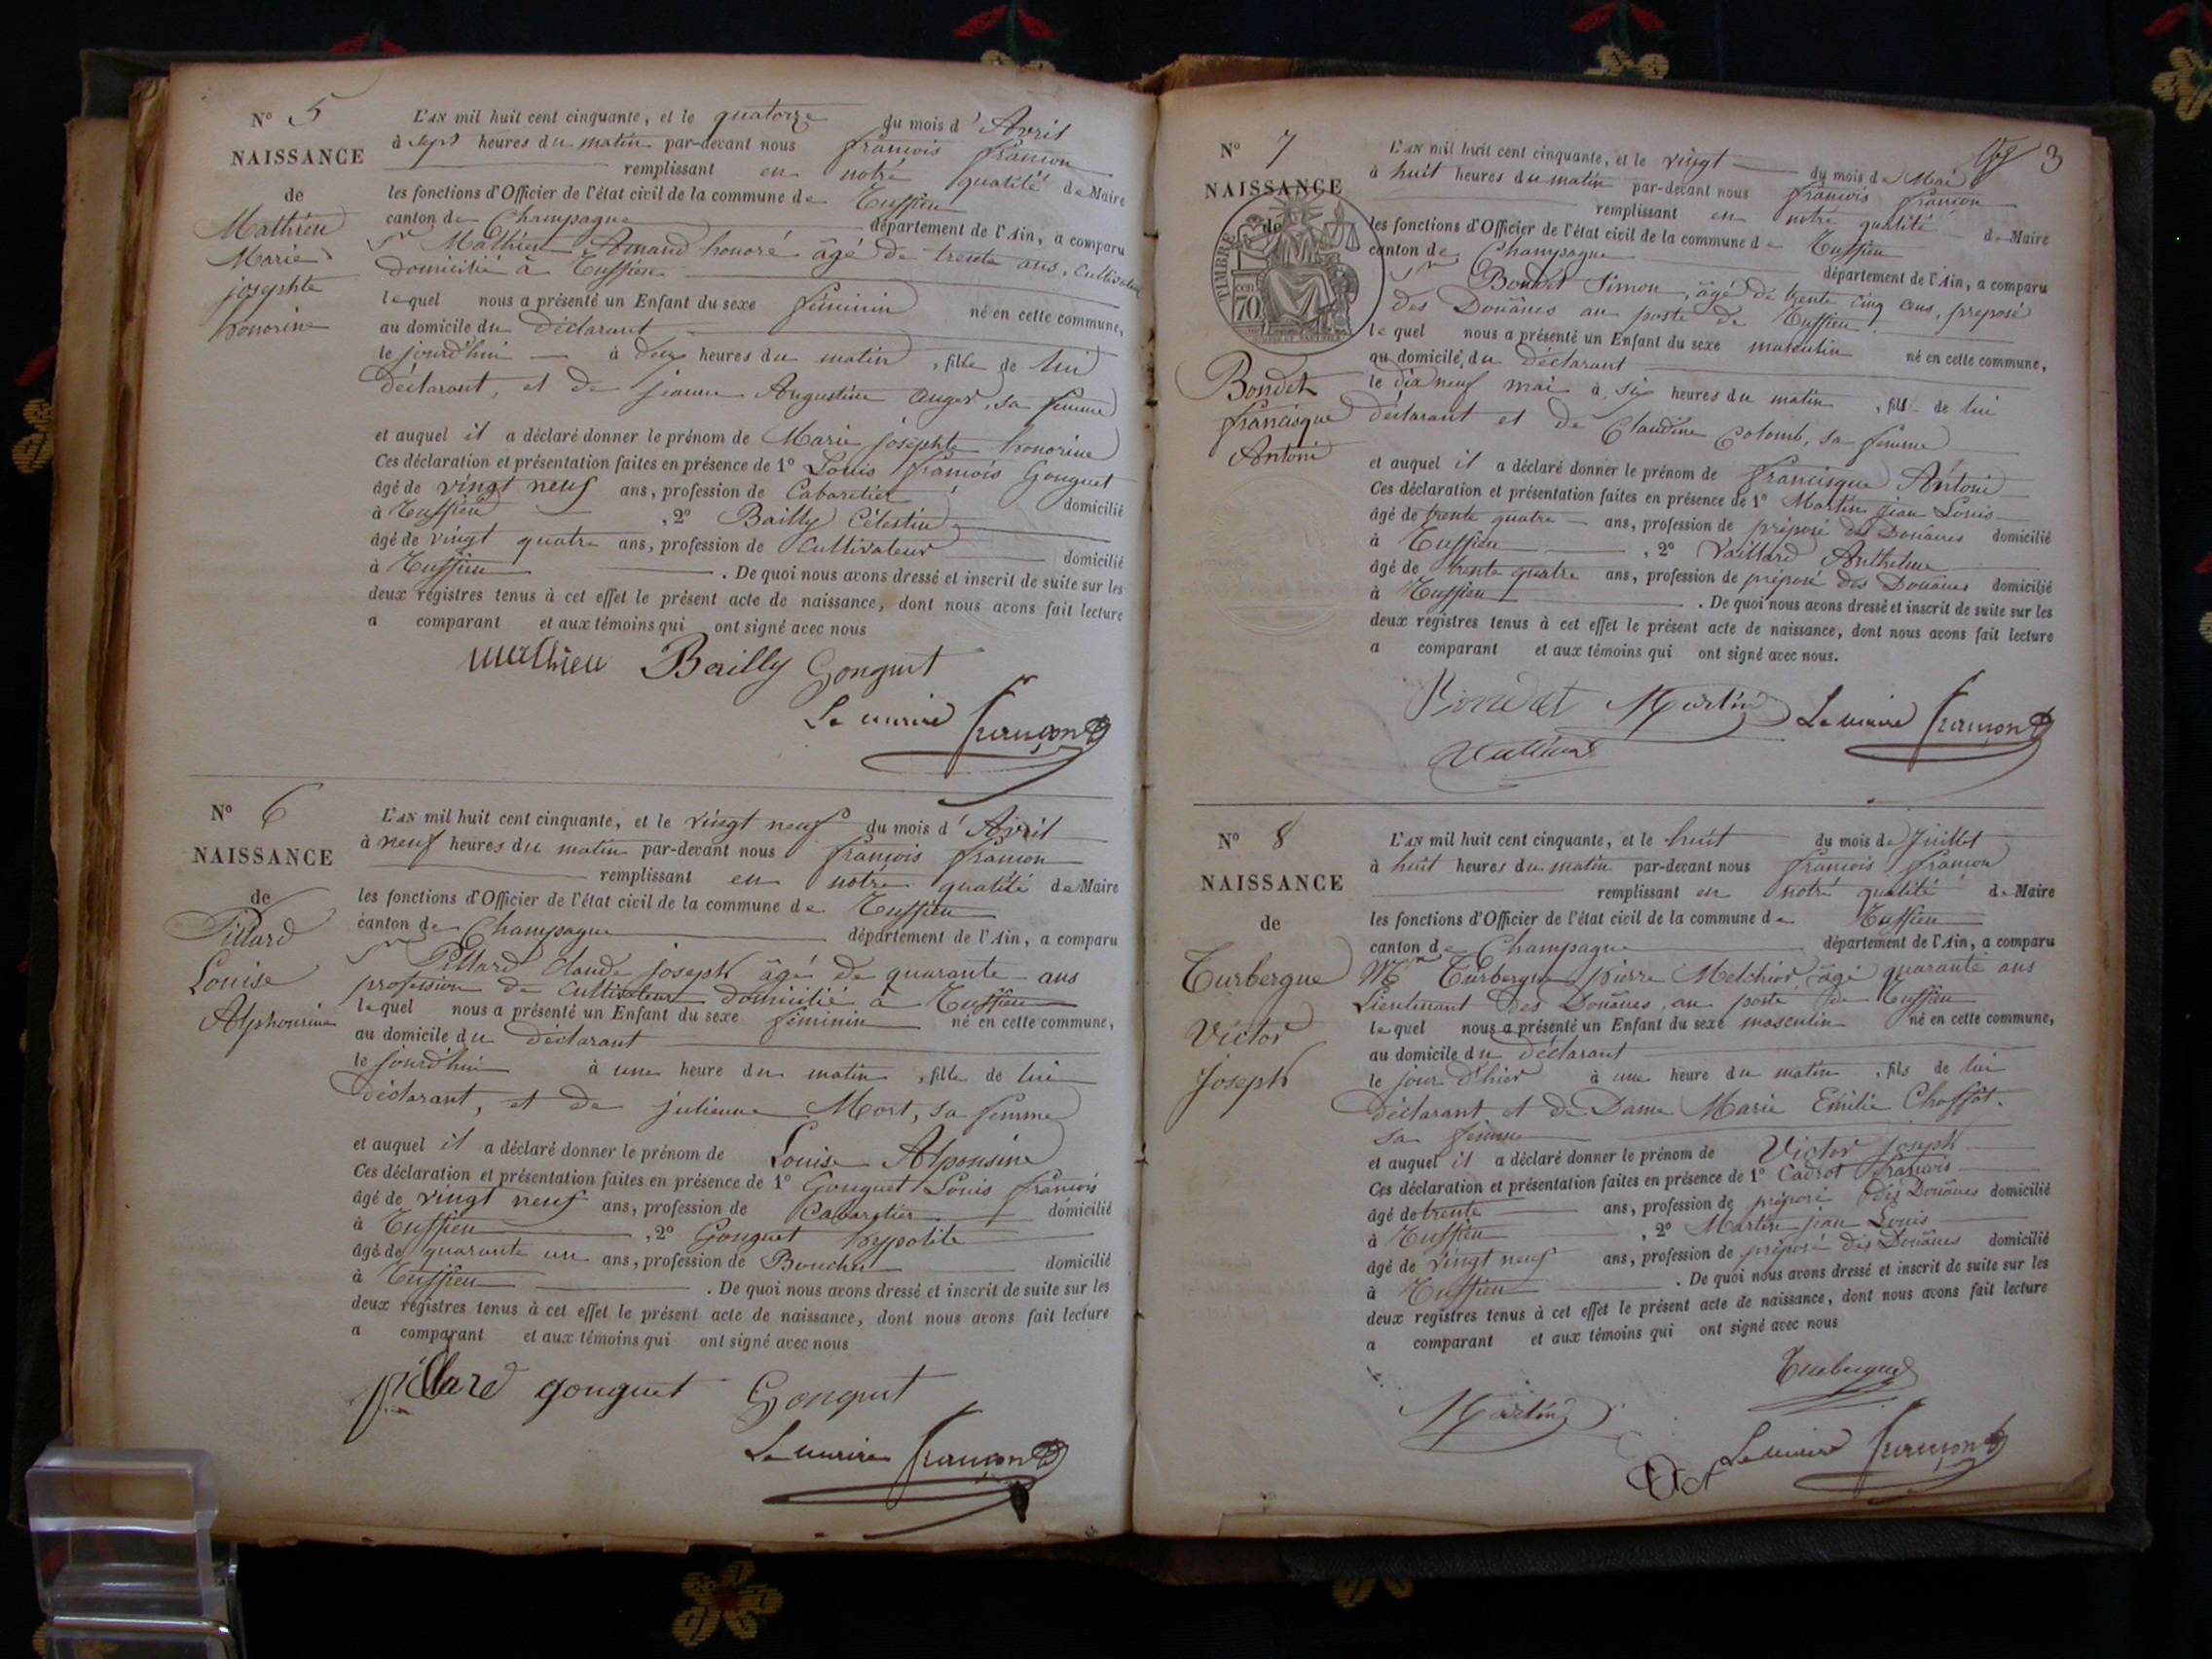 N° 5
NAISSANCE
de
Mathieu
Marie
josephte
honorine
L'AN mil huit cent cinquante, et le quatorze du mois d'Avril
à sept heures du matin par-devant nous françois françon
remplissant en notre qualité de Maire
les fonctions d'Officier de l'état civil de la commune de Tuffieu
canton de Champagne département de l'Ain, a comparu
Sr Mathieu Amand honoré âgé de trente ans, cultivateur
domicilié à Tuffieu
lequel nous a présenté un Enfant du sexe féminin né en cette commune,
au domicile du déclarant
le jourd'hui à deux heures du matin, fille de lui
déclarant, et de jeanne Augustine Auger, sa femme
et auquel il a déclaré donner le prénom de Marie josephte honorine
Ces déclaration et présentation faites en présence de 1° Louis françois Gonguet
âgé de vingt neuf ans, profession de Cabaretier domicilié
à Tuffieu, 2° Bailly Célestin
âgé de vingt quatre ans, profession de Cultivateur domicilié
à Tuffieu. De quoi nous avons dressé et inscrit de suite sur les
deux registres tenus à cet effet le présent acte de naissance, dont nous avons fait lecture
a comparant et aux témoins qui ont signé avec nous
Mathieu Bailly Gonguet
Le maire françon
N° 6
NAISSANCE
de
Pillard
Louise
Alphonsine
L'AN mil huit cent cinquante, et le vingt neuf du mois d'Avril
à neuf heures du matin par-devant nous françois françon
remplissant en notre qualité de Maire
les fonctions d'Officier de l'état civil de la commune de Tuffieu
canton de Champagne département de l'Ain, a comparu
Sr Pillard Claude joseph âgé de quarante ans
profession de Cultivateur domicilié à Tuffieu
lequel nous a présenté un Enfant du sexe féminin né en cette commune,
au domicile du déclarant
le jourd'hui à une heure du matin, fille de lui
déclarant, et de julienne Mort, sa femme
et auquel il a déclaré donner le prénom de Louise Alponsine
Ces déclaration et présentation faites en présence de 1° Gonguet Louis françois
âgé de vingt neuf ans, profession de Cabaretier domicilié
à Tuffieu, 2° Gonguet hypolite
âgé de quarante un ans, profession de Boucher domicilié
à Tuffieu. De quoi nous avons dressé et inscrit de suite sur les
deux registres tenus à cet effet le présent acte de naissance, dont nous avons fait lecture
a comparant et aux témoins qui ont signé avec nous
pillard gonguet Gonguet
Le maire françon
3
N° 7
NAISSANCE
de
TIMBRE
cen 70
Bondet
francisque
Antoni
L'AN mil huit cent cinquante, et le vingt du mois de Mai
à huit heures du matin par-devant nous françois françon
remplissant en notre qualité de Maire
les fonctions d'Officier de l'état civil de la commune de Tuffieu
canton de Champagne département de l'Ain, a comparu
Sr Bondet Simon, âgé de trente cinq ans, preposé
des Douânes au poste de Tuffieu
lequel nous a présenté un Enfant du sexe masculin né en cette commune,
au domicile du déclarant
le dix neuf mai à six heures du matin, fils de lui
déclarant et de Claudine Colomb, sa femme
et auquel il a déclaré donner le prénom de francisque Antoni
Ces déclaration et présentation faites en présence de 1° Martin jean Louis
âgé de trente quatre ans, profession de préposé des Douânes domicilié
à Tuffieu, 2° Vaillard Anthelme
âgé de trente quatre ans, profession de préposé des Douânes domicilié
à Tuffieu. De quoi nous avons dressé et inscrit de suite sur les
deux registres tenus à cet effet le présent acte de naissance, dont nous avons fait lecture
a comparant et aux témoins qui ont signé avec nous.
Bondet Martin Le maire françon
N° 8
NAISSANCE
de
Turbergue
Victor
Joseph
L'AN mil huit cent cinquante, et le huit du mois de Juillet
à huit heures du matin par-devant nous françois françon
remplissant en notre qualité de Maire
les fonctions d'Officier de l'état civil de la commune de Tuffieu
canton de Champagne département de l'Ain, a comparu
Mr Turbergue pierre Melchior, âgé quarante ans
Lieutenant des Douânes, au poste de Tuffieu
lequel nous a présenté un Enfant du sexe masculin né en cette commune,
au domicile du déclarant
le jour d'hier à une heure du matin, fils de lui
déclarant et de Dame Marie Emilie Choffat.
sa femme
et auquel il a déclaré donner le prénom de Victor joseph
Ces déclaration et présentation faites en présence de 1° Cadrot françois
âgé de trente ans, profession de préposé des Douânes domicilié
à Tuffieu, 2° Martin jean Louis
âgé de vingt neuf ans, profession de préposé des Douânes domicilié
à Tuffieu. De quoi nous avons dressé et inscrit de suite sur les
deux registres tenus à cet effet le présent acte de naissance, dont nous avons fait lecture
a comparant et aux témoins qui ont signé avec nous
Turbergue
Martin
Le maire françon